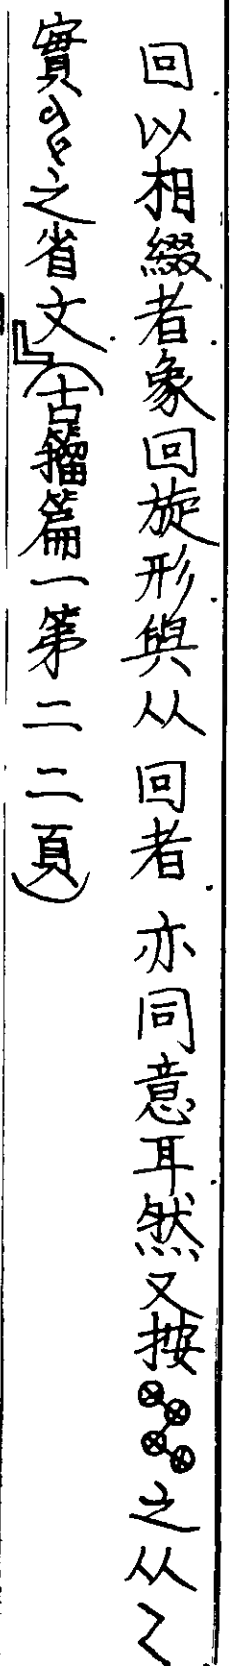 回以相綴者象回旋形與从回者亦同意耳然又按之从
實之省文』（古籀篇一第二二頁）